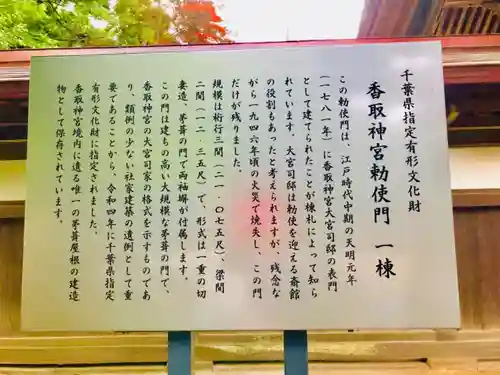 千葉県指定有形文化財
香取神宮勅使門　一棟
この勅使門は、江戸時代中期の天明元年
（一七八一年）に香取神宮大宮司邸の表門
として建てられたことが棟札によって知ら
れています。大宮司邸は勅使を迎える斎館
の役割もあったと考えられますが、残念な
がら一九四六年頃の火災で焼失し、この門
だけが残りました。
規模は桁行三間（二一・〇七五尺）、梁間
二間（一二・三五尺）で、形式は一重の切
妻造、茅葺の門で両袖塀が付属します。
この門は建ちの高い大規模な茅葺の門で、
香取神宮の大宮司家の格式を示すものであ
り、類例の少ない社家建築の遺例として重
要であることから、令和四年に千葉県指定
有形文化財に指定されました。
香取神宮境内に遺る唯一の茅葺屋根の建造
物として保存されています。